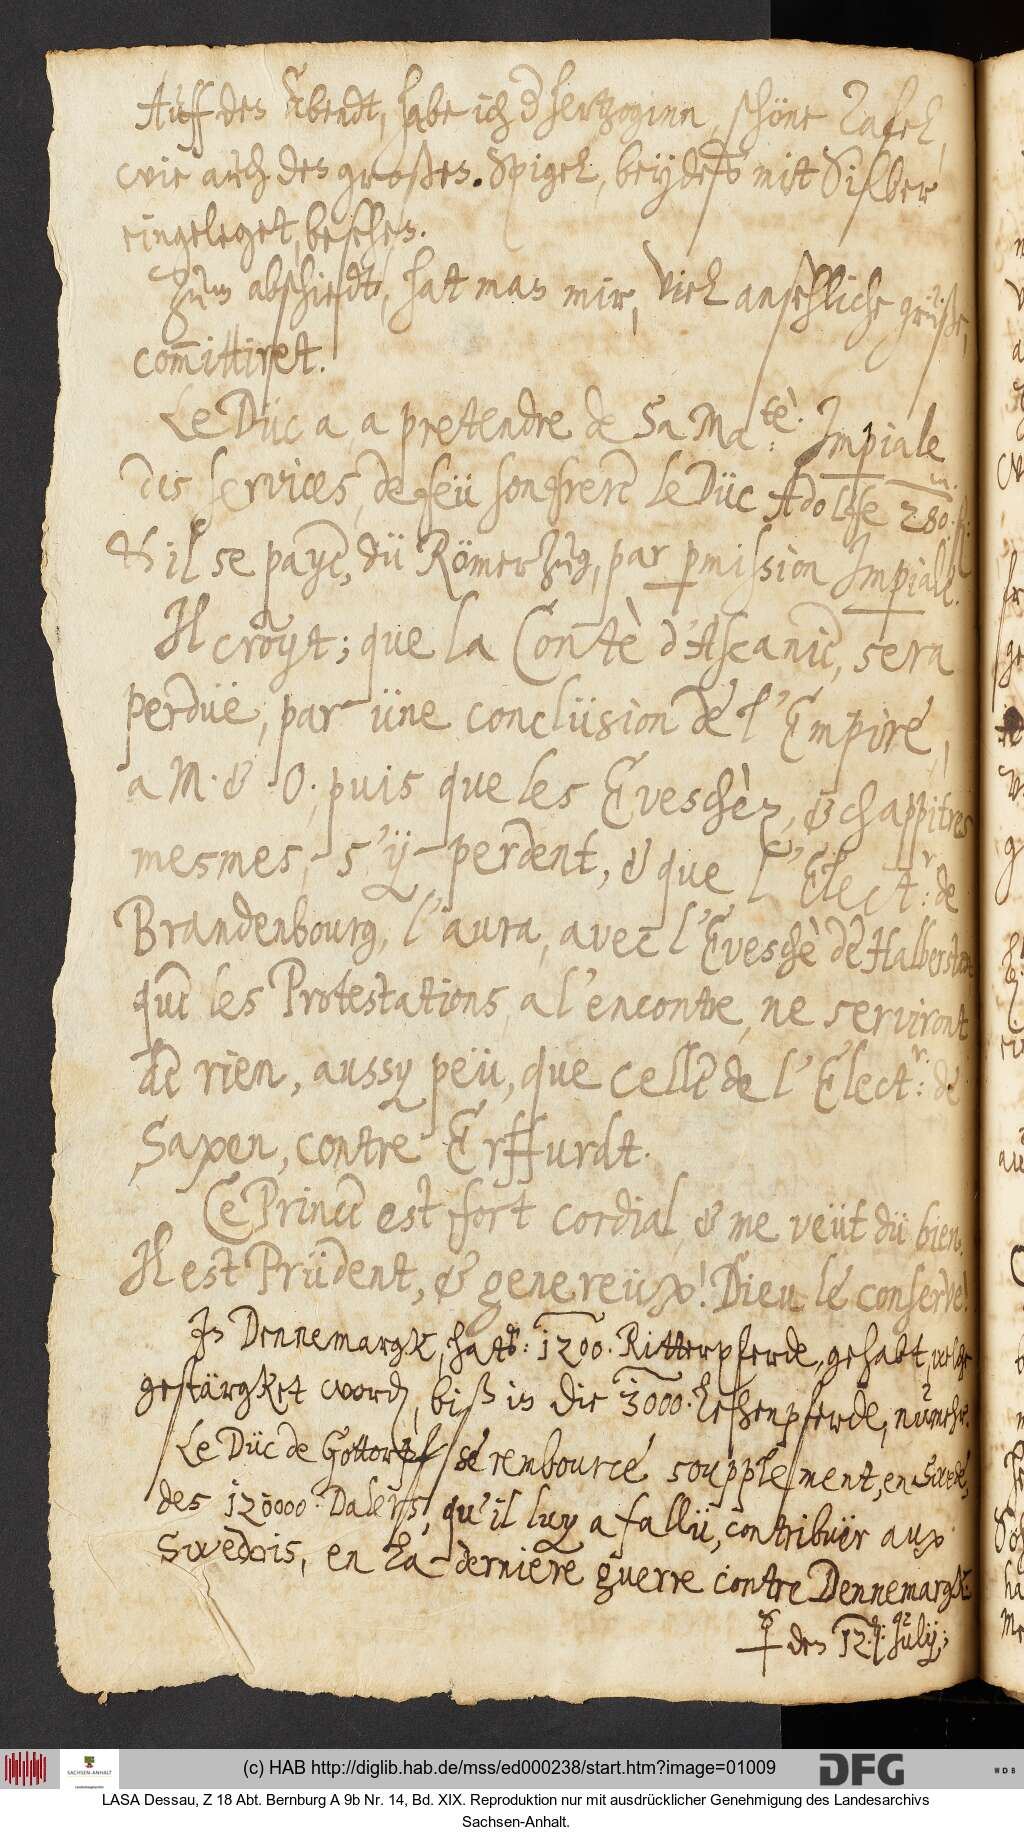 Auff den Abendt, habe ich d hertzoginn, schöne Tafel,
wie auch den großen Spigel, beydeß mitt Silber
eingeleget, besehen.
Zum abschiedt, hat man mir, viel ansehliche grüße,
com̄ittiret.
Le Düc a, a pretendre de Sa Ma:tè. Impiale
des services, de feü son frere le Düc Adolfe 280. m. fl.
& il se paye, dü Römer Zug, par pmission Impiale.
Il croyt; que la Contè d'Ascanie, sera
perdüe, par üne conclüsion de l'Empire,
a M. & O; puis que les Eveschèz, & chappitres
mesmes, s'ÿ perdent, & que l'Elect:r de
Brandenbourg, l'aura, avec l'Eveschè de Halberstadt
que les Protestations, a l'encontre, ne serviront
de rien, aussy peü, que celle de l'Elect:r de
Saxen, contre Erffurdt.
Ce Prince est fort cordial, & me veüt dü bien.
Il est Prüdent, & genereüx! Dieu le conserve!
In Dennemargk, hats: 1200. Ritterpferde, gehabt, welche
gestärgket worden, biß in die 3000. Lehenpferde, nümehr.
Le Düc de Gottorpf se rembource soupplement, en Swede,
des 120000 Dalers, qu'il luy a fallü, contribuer aux
Swedois, en la derniere guerre contre Dennemargk.
den 12. July;
(c) HAB http://diglib.hab.de/mss/ed000238/start.htm?image=01009
SACHSEN-ANHALT
DFG
WDB
LASA Dessau, Z 18 Abt. Bernburg A 9b Nr. 14, Bd. XIX. Reproduktion nur mit ausdrücklicher Genehmigung des Landesarchivs
Sachsen-Anhalt.